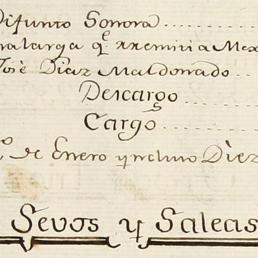 Difunto Sonora
nalarga qe rremiti a Mex
José Diaz Maldonado
Descargo
Cargo
o de Enero y incluio Diez
Sevos y Saleas